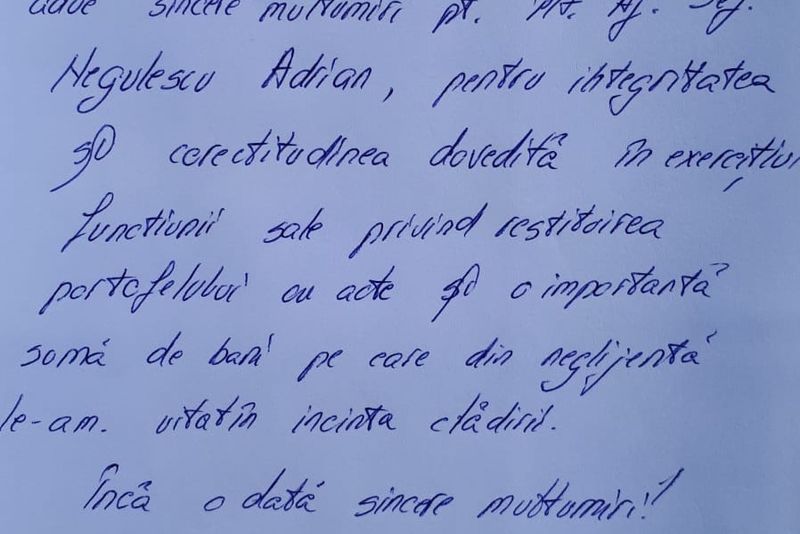 aduc sincere mulțumiri pt. Plt. Aj. Șef.
Negulescu Adrian, pentru integritatea
și corectitudinea dovedită în exercițiu
funcțiunii sale privind restituirea
portofelului cu acte și o importantă
sumă de bani pe care din neglijență
le-am. uitat în incinta clădirii.
Încă o dată sincere mulțumiri!